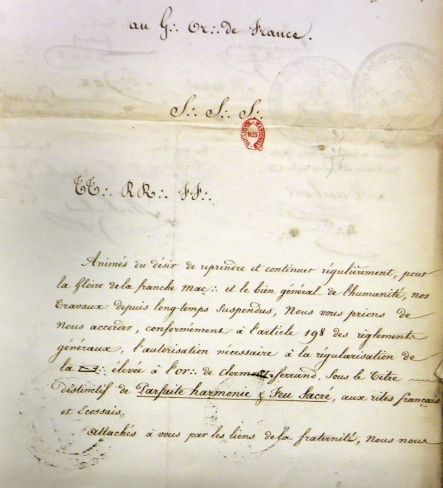 au G∴ Or∴ de France.
S∴ S∴ S∴
TT∴ RR∴ FF∴
Animés du désir de reprendre et continuer régulièrement, pour
la Gloire de la franche maç∴ et le bien général de l'humanité, nos
travaux depuis long-temps suspendus, Nous vous prions de
nous accorder, conformément à l'article 198 des règlements
généraux, l'autorisation nécessaire à la régularisation de
la élevée à l'or∴ de Clermont-ferrand, sous le titre
distinctif de Parfaite harmonie & Feu Sacré, aux rites français
et Ecossais,
attachés à vous par les liens de la fraternité, nous nous